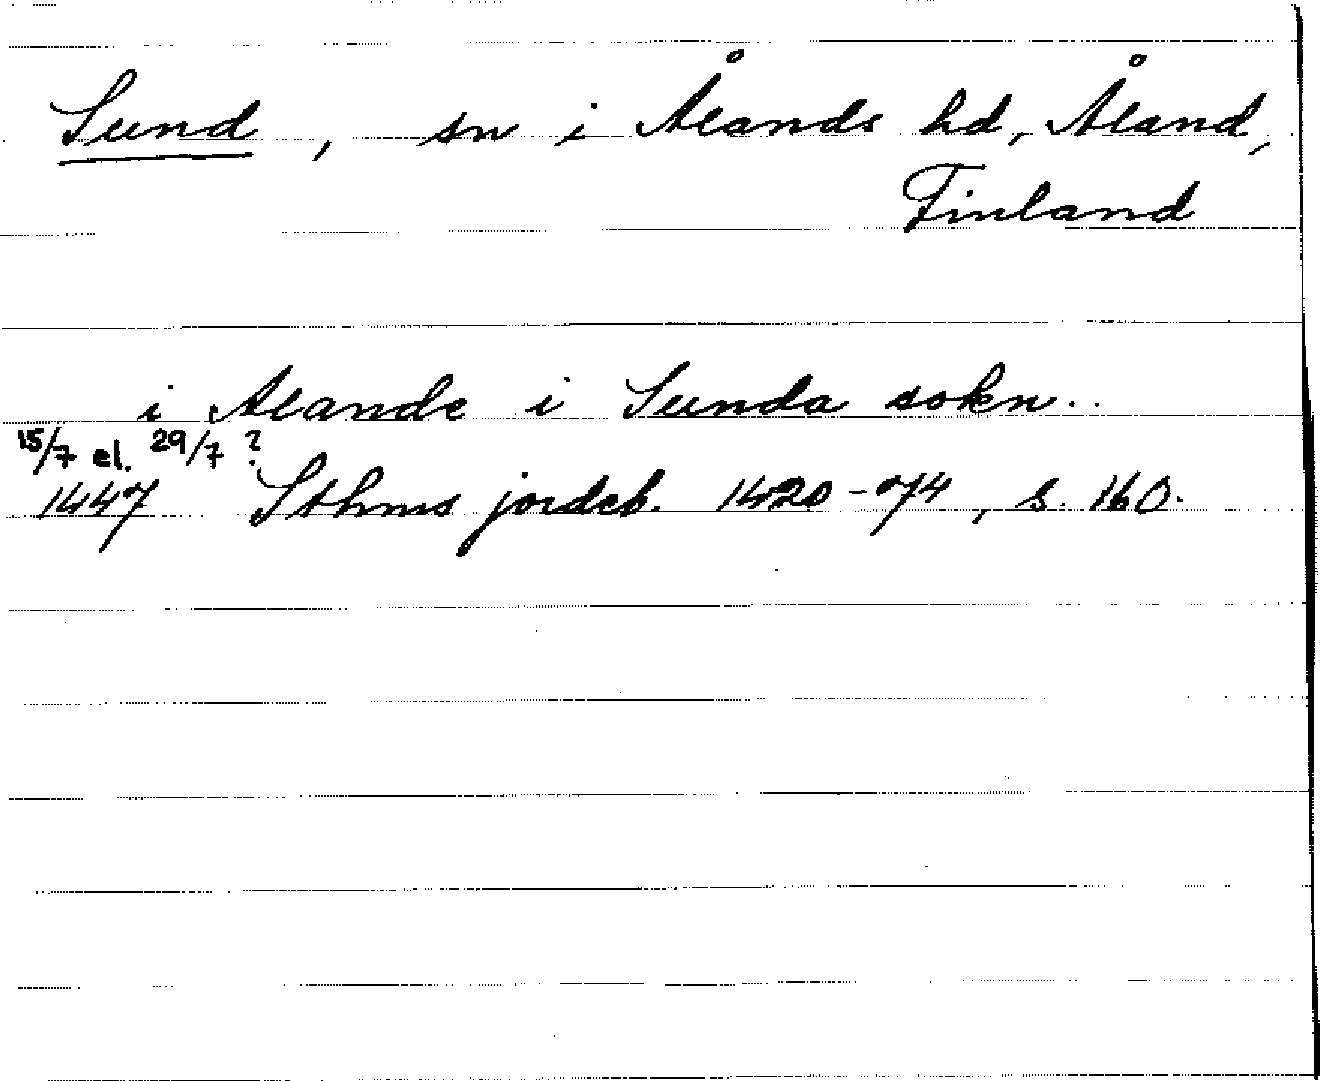 Sund, sn i Ålands hd, Åland,
Finland
i Alande i Sunda sokn..
15/7 el. 29/7 ?
1447 Sthms jordeb. 1420-74, s. 160.